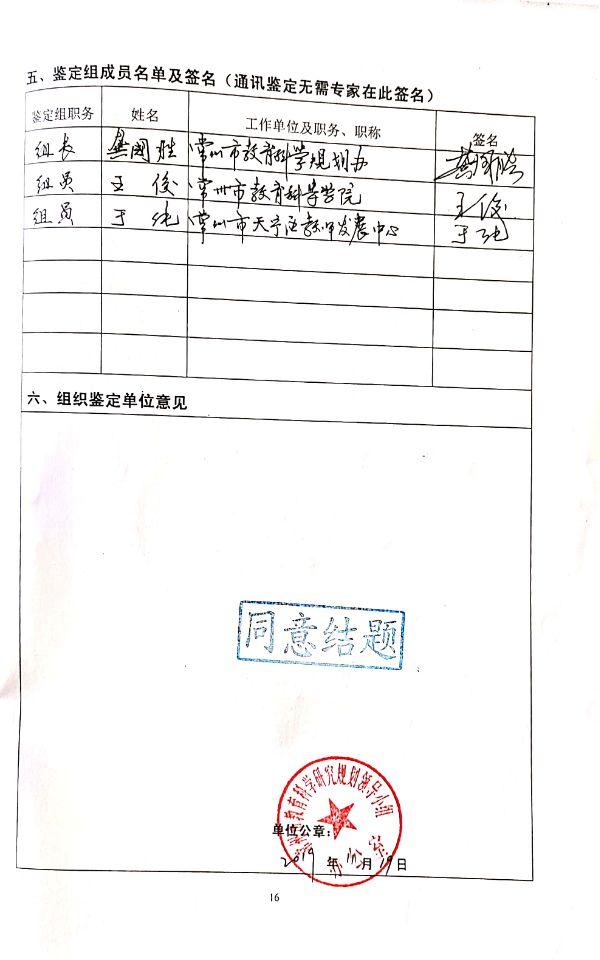 五、鉴定组成员名单及签名（通讯鉴定无需专家在此签名）
鉴定组职务 姓名 工作单位及职务、职称 签名
组长 龚国胜 常州市教育科学规划办 龚国胜
组员 王俊 常州市教育科学学院 王俊
组员 于纯 常州市天宁区教师发展中心 于纯
六、组织鉴定单位意见
同意结题
教育科学研究规划领导小组
办公室
单位公章：
2019年11月29日
16